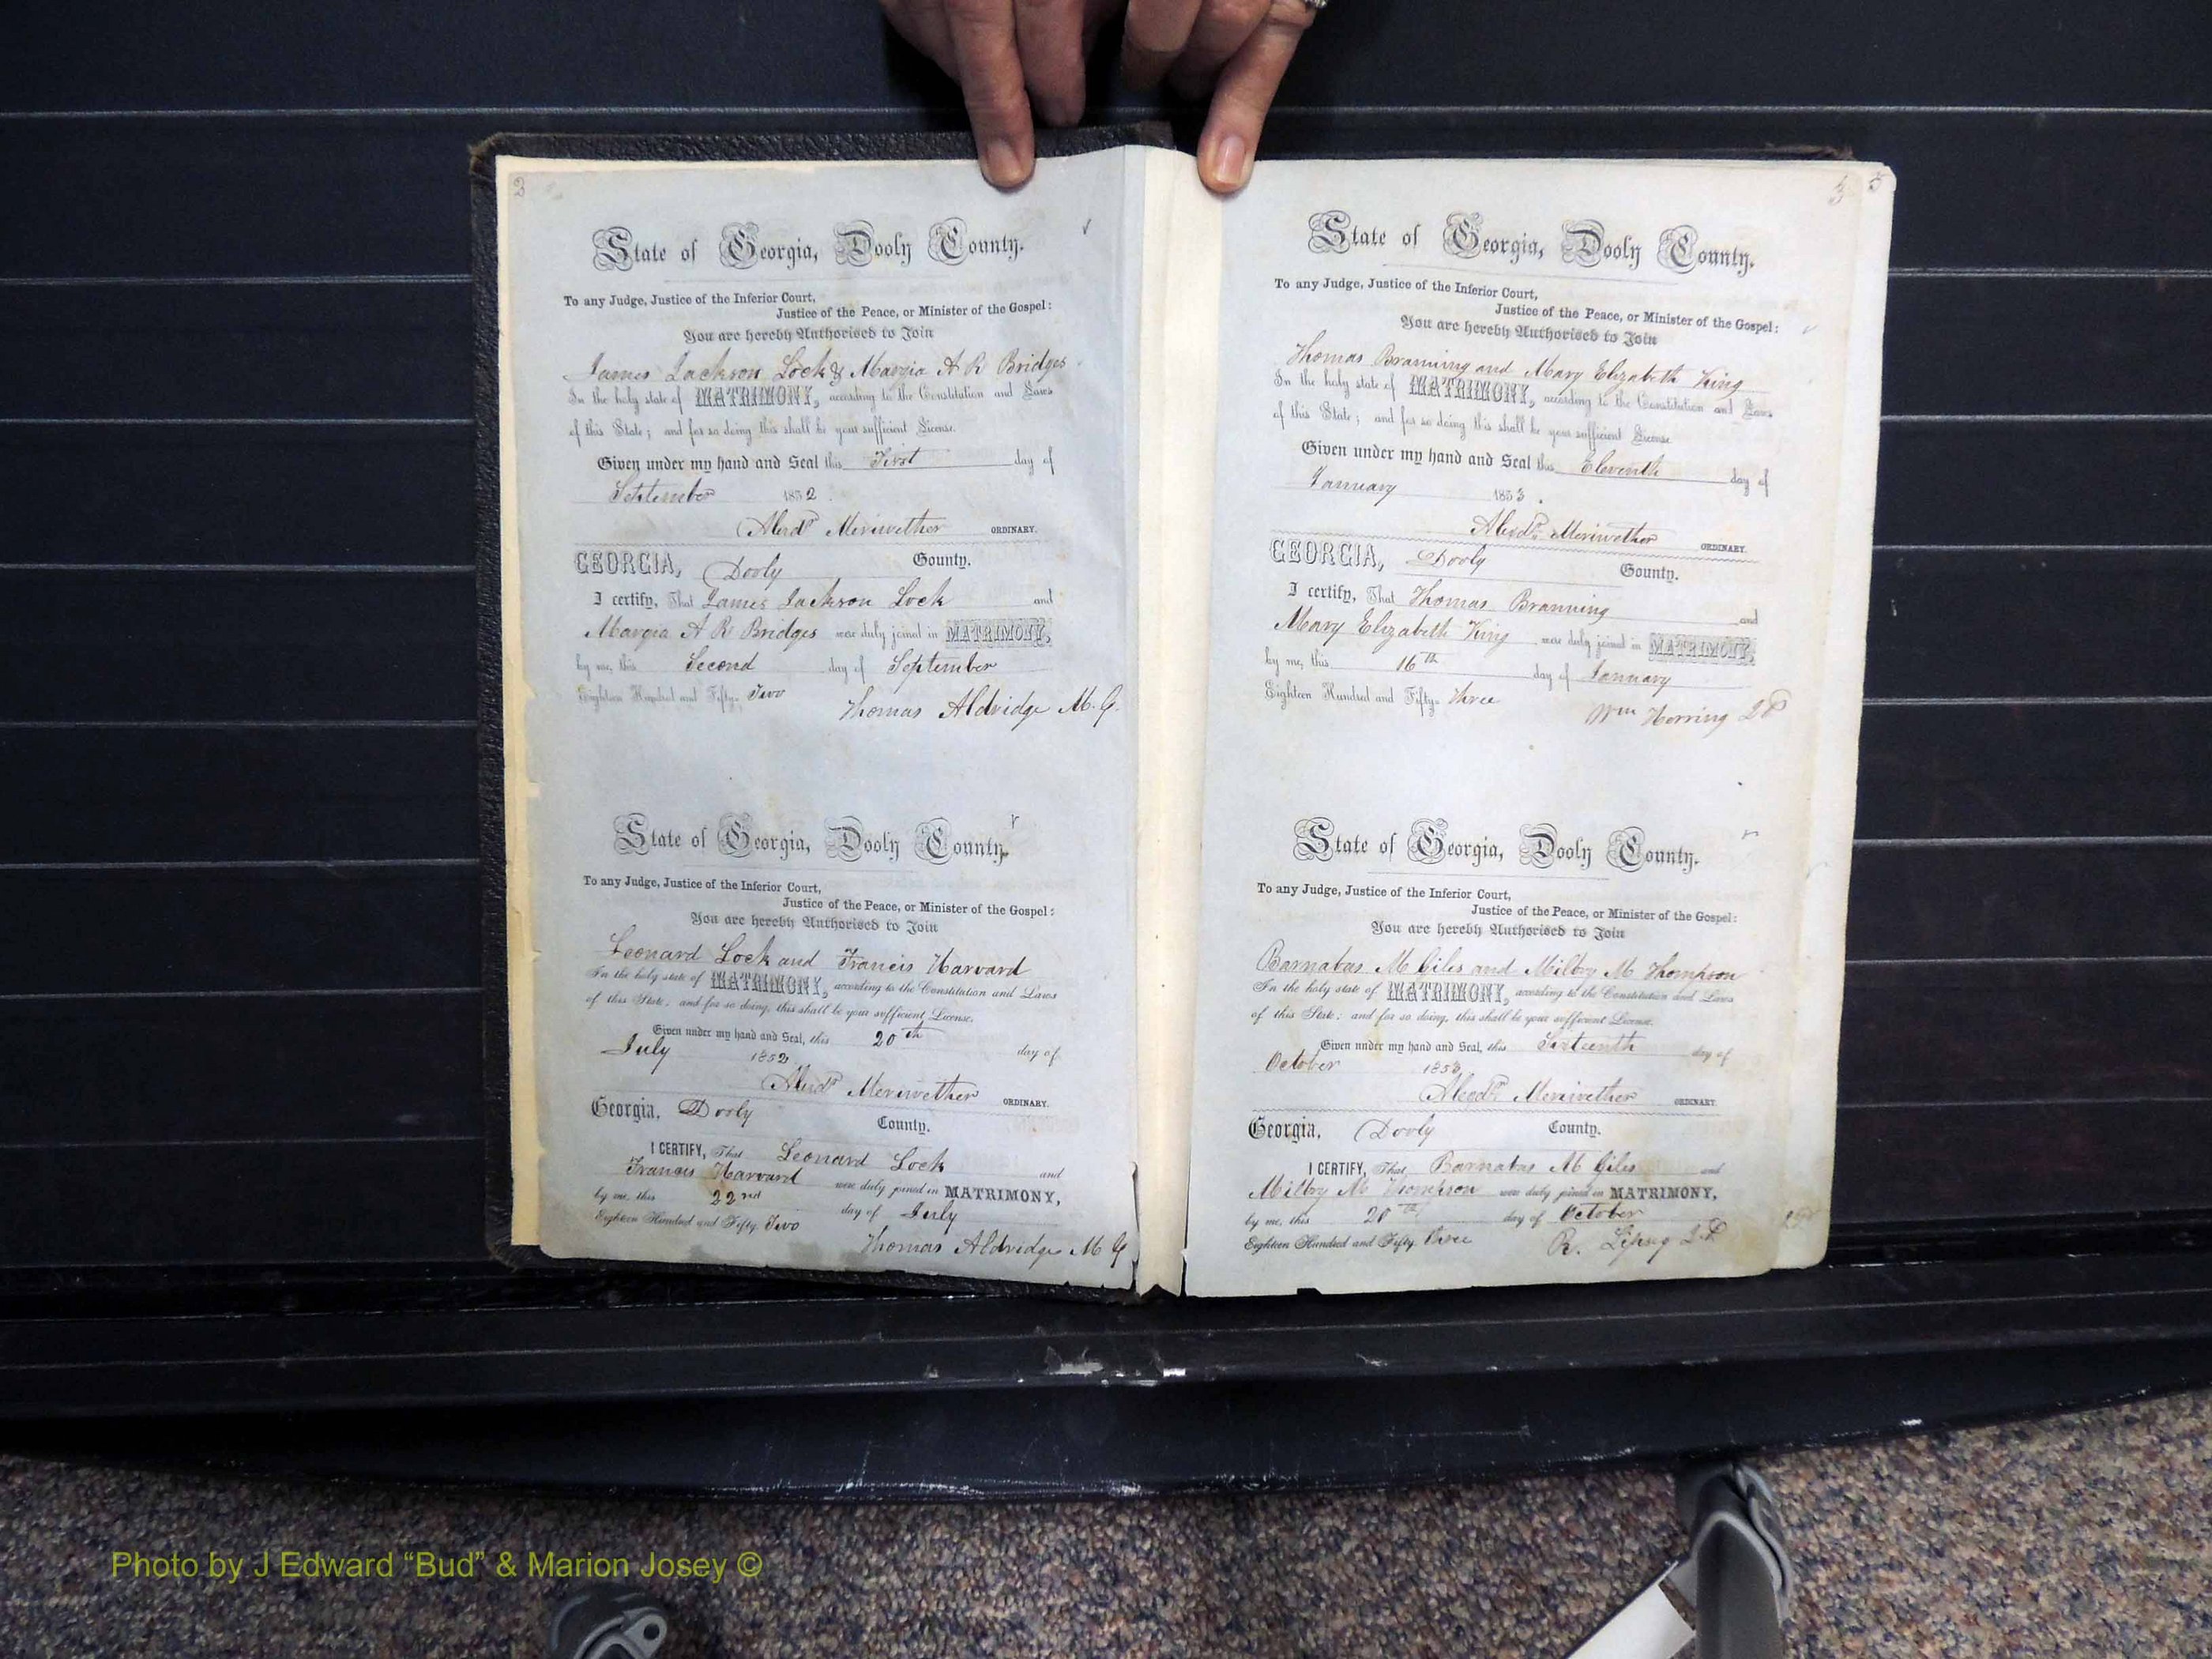 2
State of Georgia, Dooly County.
To any Judge, Justice of the Inferior Court,
Justice of the Peace, or Minister of the Gospel:
You are hereby Authorised to Join
James Jackson Lock & Margia A R Bridges
In the holy state of MATRIMONY, according to the Constitution and Laws
of this State; and for so doing this shall be your sufficient License.
Given under my hand and Seal this First day of
September 1852.
Alexdr Meriwether ORDINARY.
GEORGIA, Dooly County.
I certify, That James Jackson Lock and
Margia A R Bridges were duly joined in MATRIMONY,
by me, this Second day of September
Eighteen Hundred and Fifty- Two
Thomas Aldridge M. G.
State of Georgia, Dooly County.
To any Judge, Justice of the Inferior Court,
Justice of the Peace, or Minister of the Gospel:
You are hereby Authorised to Join
Leonard Lock and Francis Harvard
In the holy state of MATRIMONY, according to the Constitution and Laws
of this State, and for so doing, this shall be your sufficient License.
Given under my hand and Seal, this 20th day of
July 1852
Alexdr Meriwether ORDINARY.
Georgia, Dooly County.
I CERTIFY, That Leonard Lock and
Francis Harvard were duly joined in MATRIMONY,
by me, this 22nd day of July
Eighteen Hundred and Fifty Two
Thomas Aldridge M G
3
State of Georgia, Dooly County.
To any Judge, Justice of the Inferior Court,
Justice of the Peace, or Minister of the Gospel:
You are hereby Authorised to Join
Thomas Branning and Mary Elizabeth King
In the holy state of MATRIMONY, according to the Constitution and Laws
of this State; and for so doing this shall be your sufficient License
Given under my hand and Seal this Eleventh day of
January 1853.
Alexdr Meriwether ORDINARY.
GEORGIA, Dooly County.
I certify, That Thomas Branning and
Mary Elizabeth King were duly joined in MATRIMONY,
by me, this 16th day of January
Eighteen Hundred and Fifty- three
Wm Herring J P
State of Georgia, Dooly County.
To any Judge, Justice of the Inferior Court,
Justice of the Peace, or Minister of the Gospel:
You are hereby Authorised to Join
Barnabas M Giles and Milbry M Thompson
In the holy state of MATRIMONY, according to the Constitution and Laws
of this State; and for so doing, this shall be your sufficient License.
Given under my hand and Seal, this Sixteenth day of
October 1853
Alexdr Meriwether ORDINARY.
Georgia, Dooly County.
I CERTIFY, That Barnabas M Giles and
Milbry M Thompson were duly joined in MATRIMONY,
by me, this 20th day of October
Eighteen Hundred and Fifty three
R. Lipsey J.P.
Photo by J Edward “Bud” & Marion Josey ©